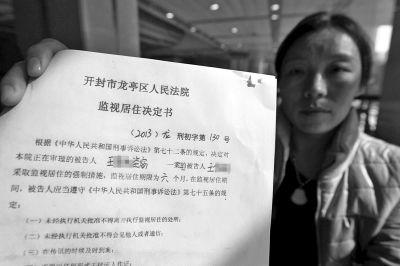 开封市龙亭区人民法院
监视居住决定书
(2013) 龙 刑初字第 130 号
根据《中华人民共和国刑事诉讼法》第七十二条的规定,决定对
本院正在审理的被告人 王 一案的被告人 王
采取监视居住的强制措施,监视居住期限为 六 个月,在监视居住期
间,被告人应当遵守《中华人民共和国刑事诉讼法》第七十五条的规
定:
(一)未经执行机关批准不得离开执行监视居住的处所;
(二)未经执行机关批准不得会见他人或者通信;
(三)在传讯的时候及时到案;